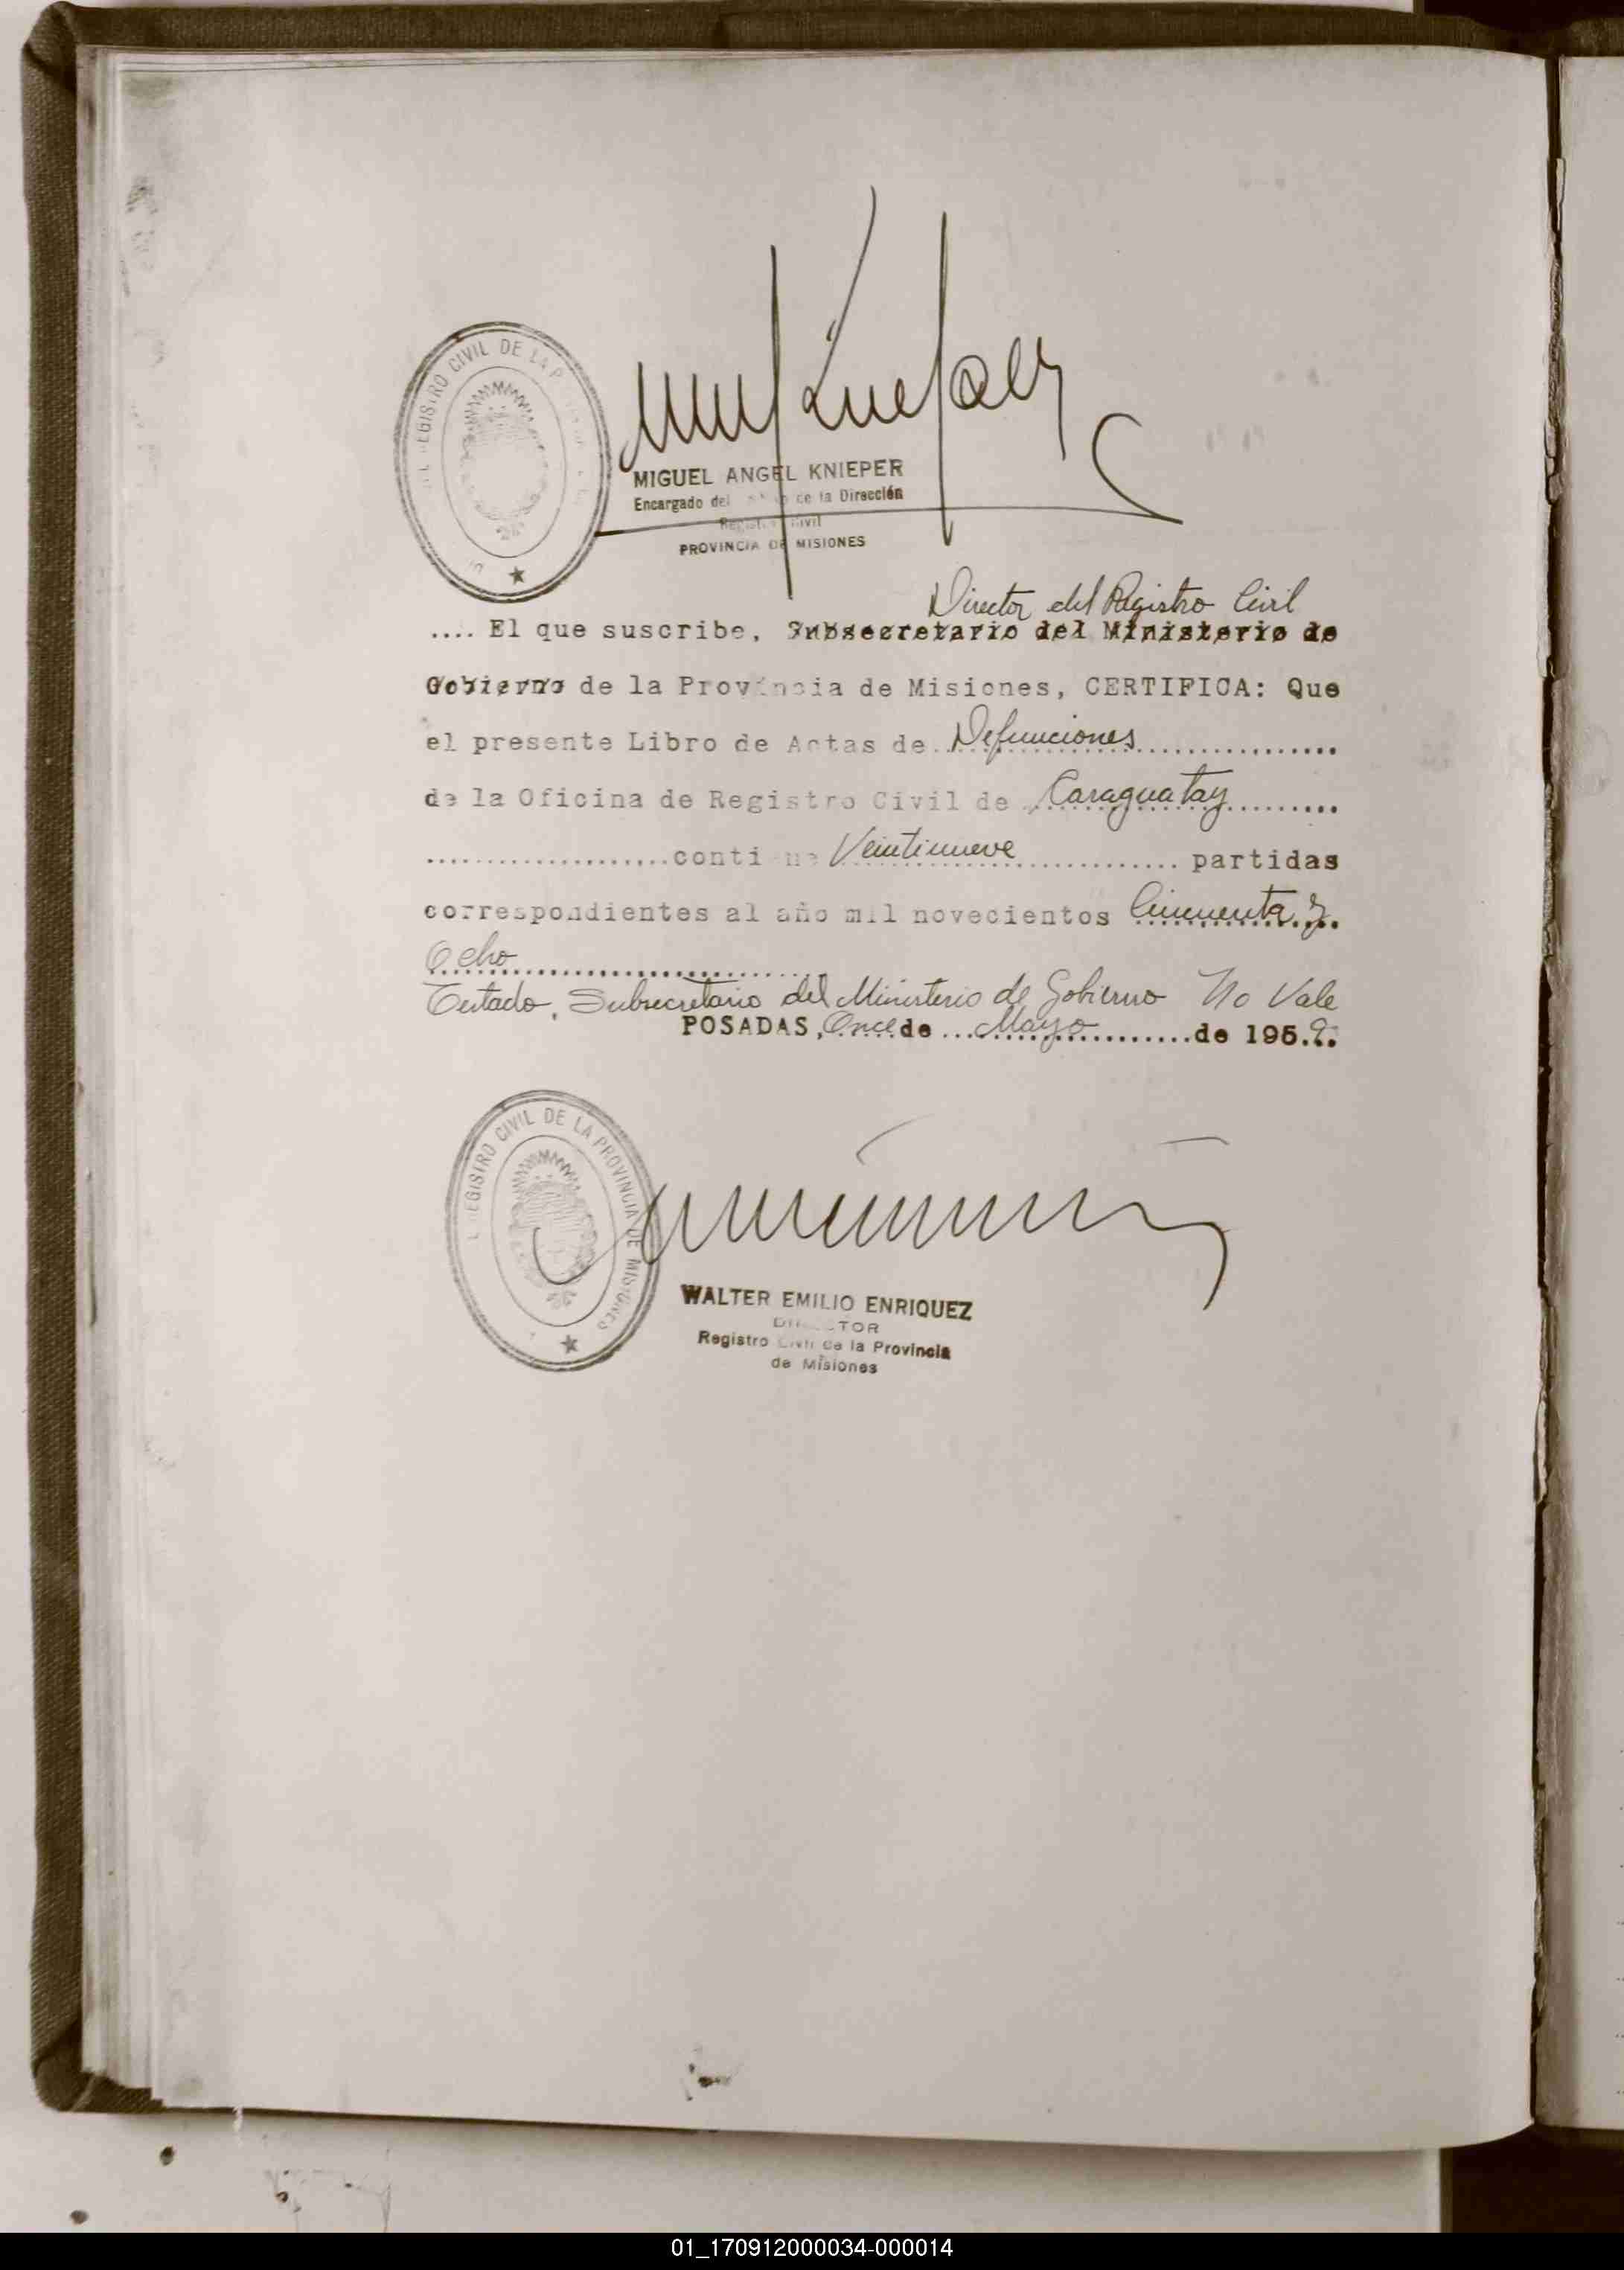 REGISTRO CIVIL DE LA
MIGUEL ANGEL KNIEPER
Encargado del de la Dirección
Registro Civil
PROVINCIA DE MISIONES
Director del Registro Civil
.... El que suscribe, Subsecretario del Ministerio de
Gobierno de la Provincia de Misiones, CERTIFICA: Que
el presente Libro de Actas de Defunciones
de la Oficina de Registro Civil de Caraguatay
contiene Veintinueve partidas
correspondientes al año mil novecientos Cincuenta y
Ocho
Testado, Subsecretario del Ministerio de Gobierno No Vale
POSADAS, Once de Mayo de 1959.
REGISTRO CIVIL DE LA PROVINCIA DE MISIONES
WALTER EMILIO ENRIQUEZ
DIRECTOR
Registro Civil de la Provincia
de Misiones
01_170912000034-000014